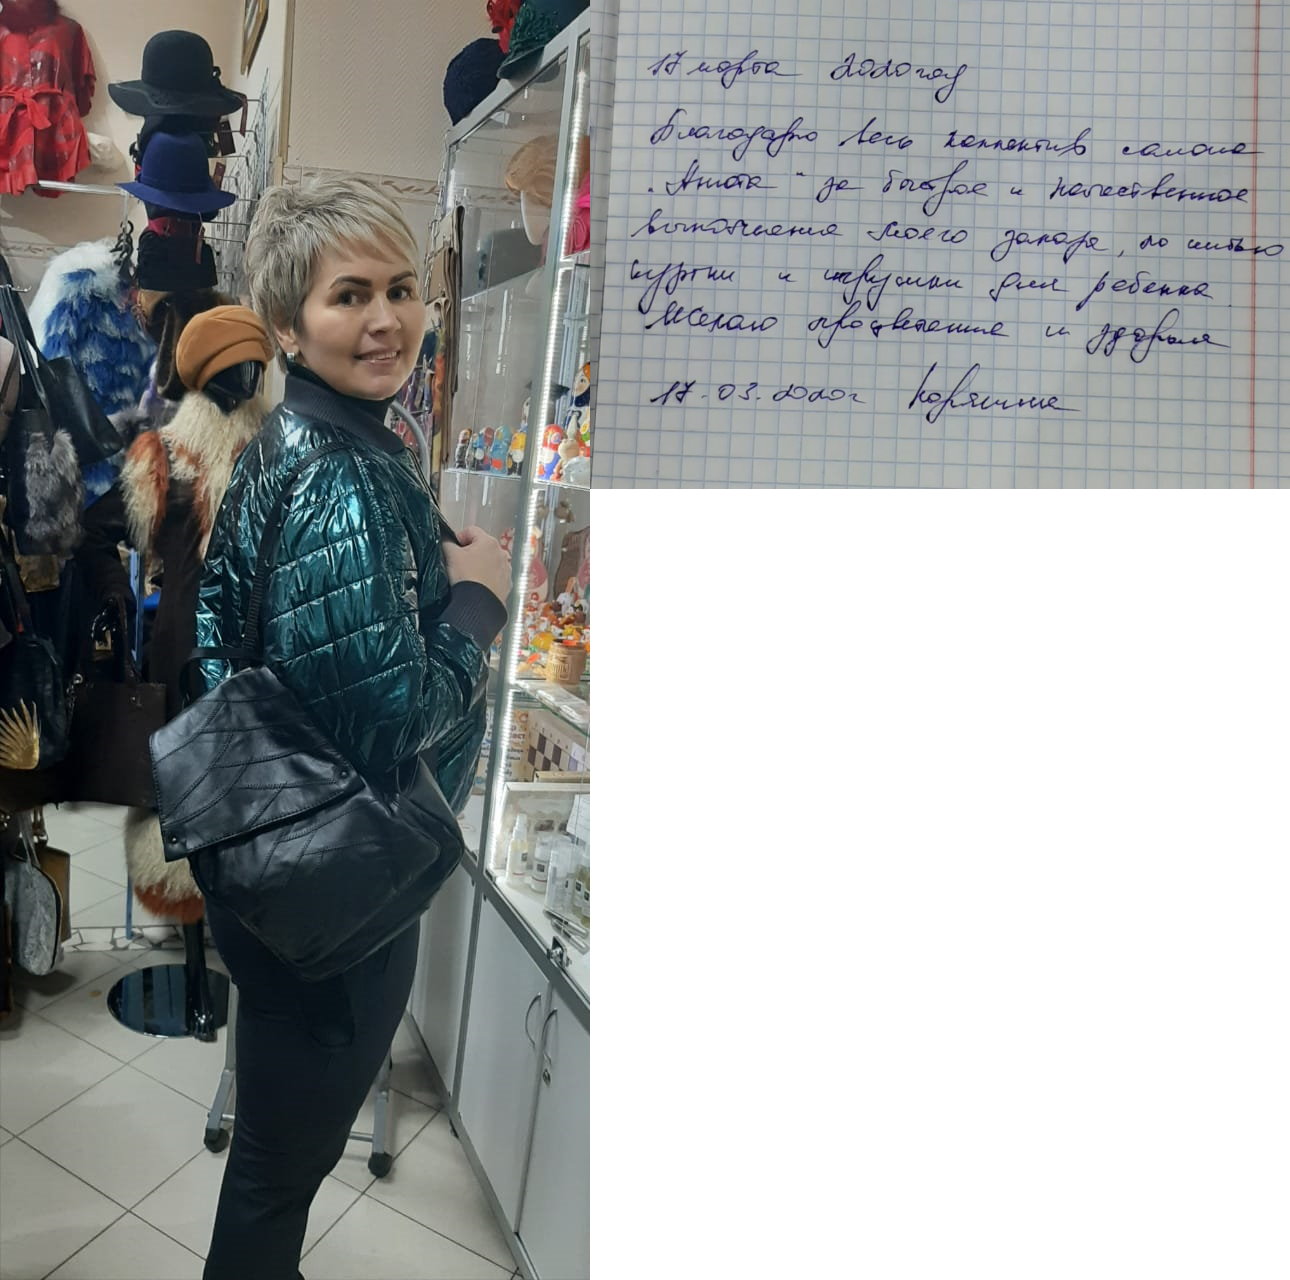 17 марта 2020 год
Благодарю весь коллектив салона
"Анюта" за быстрое и качественное
выполнение моего заказа, по шитью
куртки и игрушки для ребенка.
Желаю процветания и здоровья
17.03.2020г